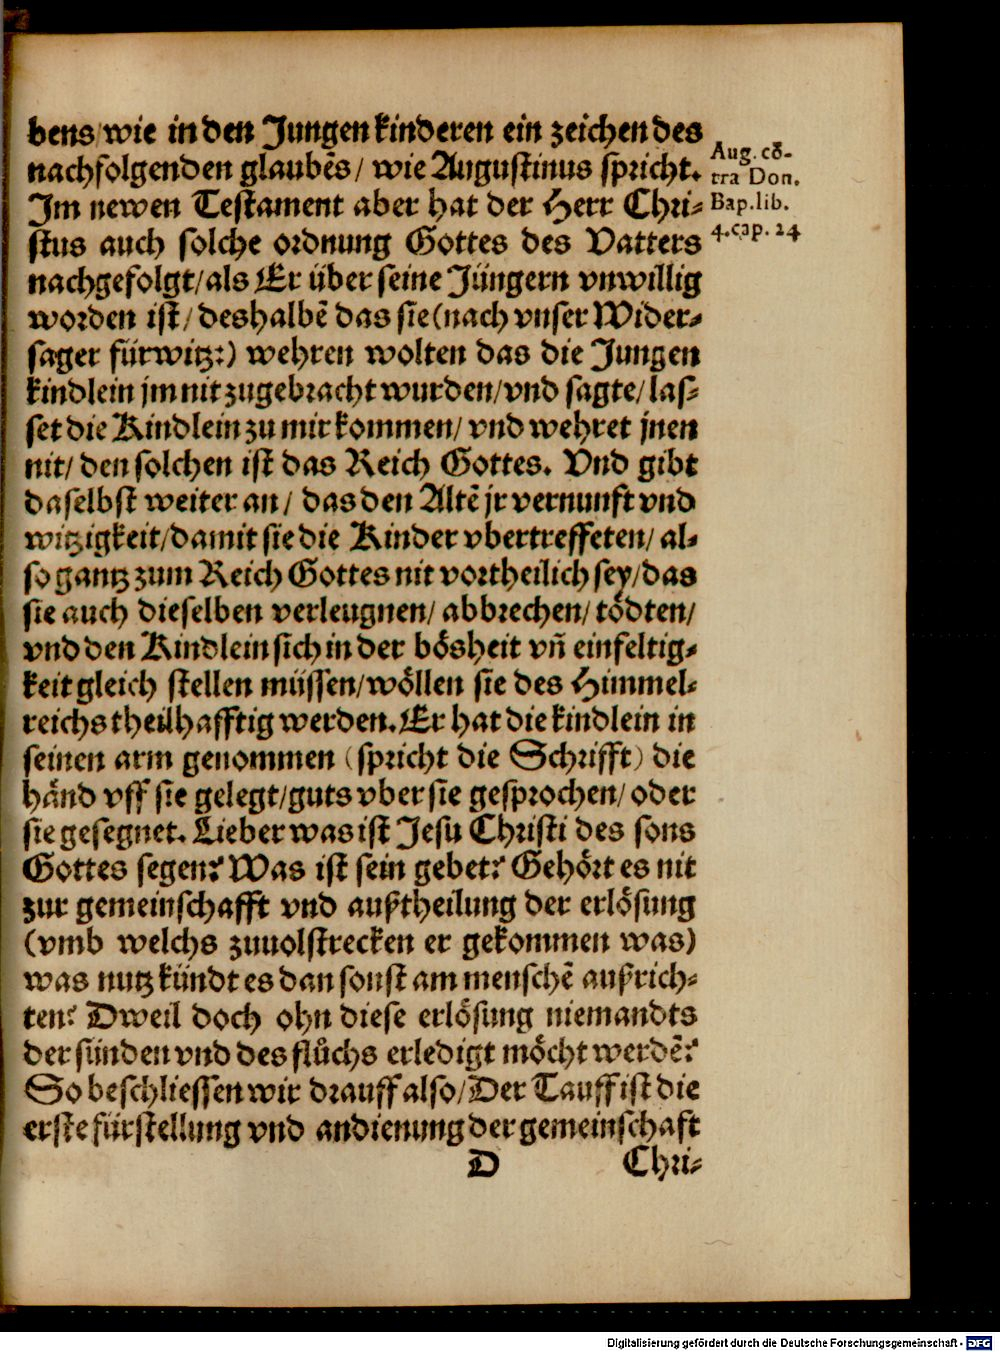 bens/wie in den Jungen kinderen ein zeichen des
nachfolgenden glaubẽs/ wie Augustinus spricht.
Im newen Testament aber hat der Herr Chri-
stus auch solche ordnung Gottes des Vatters
nachgefolgt/als Er über seine Jüngern vnwillig
worden ist/ deshalbẽ das sie (nach vnser Wider-
sager fürwitz:) wehren wolten das die Jungen
kindlein jm nit zugebracht wurden/vnd sagte/las-
set die Kindlein zu mir kommen/ vnd wehret jnen
nit/ den solchen ist das Reich Gottes. Vnd gibt
daselbst weiter an/ das den Altẽ jr vernunft vnd
witzigkeit/damit sie die Kinder vbertreffeten/ al-
so gantz zum Reich Gottes nit vortheilich sey/das
sie auch dieselben verleugnen/ abbrechen/ tödten/
vnd den Kindlein sich in der bösheit vñ einfeltig-
keit gleich stellen müssen/wöllen sie des Himmel-
reichs theilhafftig werden. Er hat die kindlein in
seinen arm genommen (spricht die Schrifft) die
händ vff sie gelegt/guts vber sie gesprochen/ oder
sie gesegnet. Lieber was ist Jesu Christi des sons
Gottes segen? Was ist sein gebet? Gehört es nit
zur gemeinschafft vnd außtheilung der erlösung
(vmb welchs zuuolstrecken er gekommen was)
was nutz kündt es dan sonst am menschẽ außrich-
ten? Dweil doch ohn diese erlösung niemandts
der sünden vnd des flůchs erledigt möcht werdẽ?
So beschliessen wir drauff also/Der Tauff ist die
erste fürstellung vnd andienung der gemeinschaft
D Chri-
Aug. cõ-
tra Don.
Bap. lib.
4. cap. 24
Digitalisierung gefördert durch die Deutsche Forschungsgemeinschaft - DFG